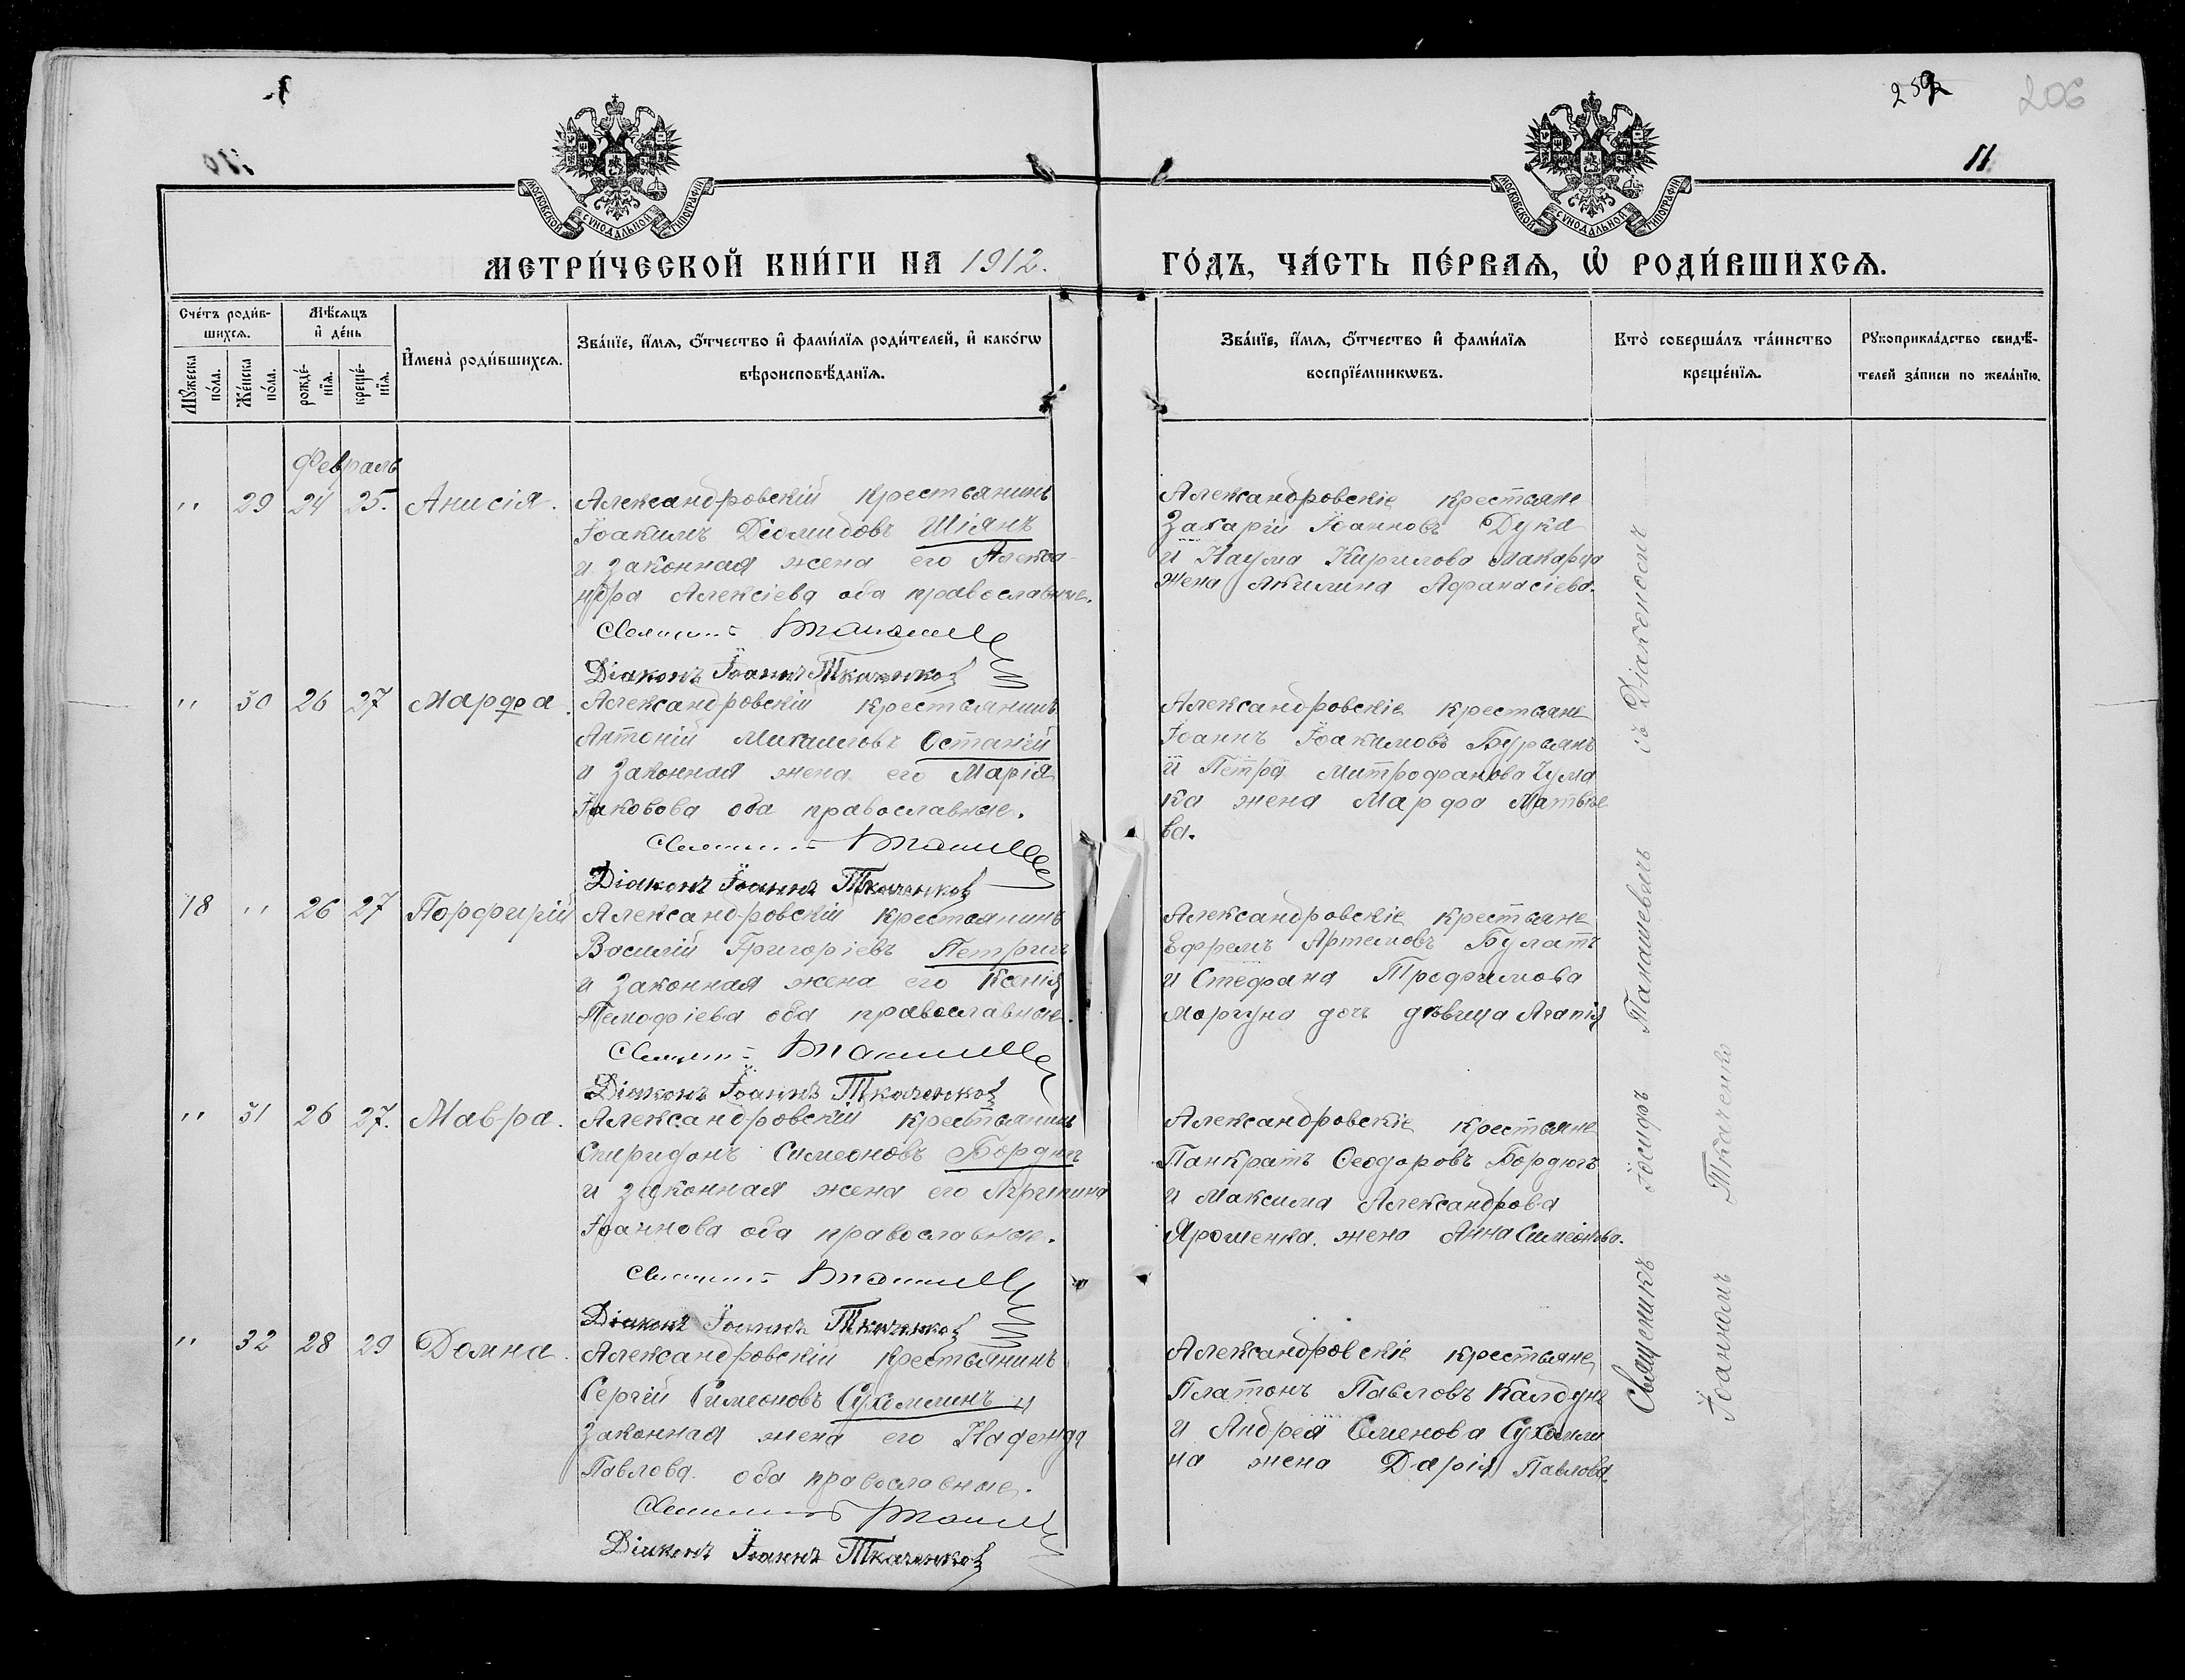 259
206
11
МОСКОВСКОЙ СѴНОДАЛЬНОЙ ТИПОГРАФІИ
МОСКОВСКОЙ СѴНОДАЛЬНОЙ ТИПОГРАФІИ
МЕТРИ́ЧЕСКОЙ КНИ́ГИ НА 1912.
ГО́ДЪ, ЧА́СТЬ ПЕ́РВАЯ, Ѡ҆ РОДИ́ВШИХСЯ.
Сче́тъ роди́в-
шихся.
Мꙋ́жеска по́ла.
Же́нска по́ла.
Мѣ́сяцъ
и҆ де́нь
рожде́-
нїя.
креще́-
нїя.
И҆мена̀ роди́вшихся.
Зва́нїе, и҆́мя, ѻ҆́тчество и҆ фами́лїя роди́телей, и҆ како́гѡ
вѣроисповѣ́данїя.
Зва́нїе, и҆́мя, ѻ҆́тчество и҆ фами́лїя
воспрїе́мникѡвъ.
Кто̀ соверша́лъ та́инство
креще́нїя.
Рꙋкоприкла́дство свидѣ́-
телей за́писи по жела́нїю.
Февраль
" 29 24 25. Анисія.
Александровскій крестьянинъ
Іоакимъ Діомидовъ Шіянъ
и законная жена его Алекса-
ндра Алексіева оба православные.
Діаконъ Іоаннъ Ткаченко
Александровскіе крестьяне
Захарій Іоанновъ Дука
и Наума Кирилова Макарца
жена Акилина Афанасіева.
" 30 26 27 Марфа.
Александровскій крестьянинъ
Антоній Михаиловъ Остапій
и законная жена его Марія
Іаковова оба православные.
Діаконъ Іоаннъ Ткаченко
Александровскіе крестьяне
Іоаннъ Іоакимовъ Бурьянъ
и Петра Митрофанова Чума
ка жена Марфа Матвіе
ва.
18 " 26 27 Порфирій
Александровскій крестьянинъ
Василій Григоріевъ Петрикъ
и законная жена его Ксенія
Тимофіева оба православные.
Діаконъ Іоаннъ Ткаченко
Александровскіе крестьяне
Ефремъ Артемовъ Булатъ
и Стефана Трофимова
Моргуна дочь дѣвица Агапія
" 31 26 27. Мавра.
Александровскій крестьянинъ
Спиридонъ Симеоновъ Бордюгъ
и законная жена его Агрипина
Іоаннова оба православные.
Діаконъ Іоаннъ Ткаченко
Александровскіе крестьяне
Панкратъ Феодоровъ Бордюгъ
и Максима Александрова
Ярошенка жена Анна Симеонова.
" 32 28 29 Домна.
Александровскій крестьянинъ
Сергій Симеоновъ Сухомлинъ и
законная жена его Надежда
Павлова оба православные.
Діаконъ Іоаннъ Ткаченко
Александровскіе крестьяне
Платонъ Павловъ Калдунъ
и Андрея Семенова Сухомли
на жена Дарія Павлова.
Священникъ Іосифъ съ Діакономъ
Іоанномъ Ткаченко